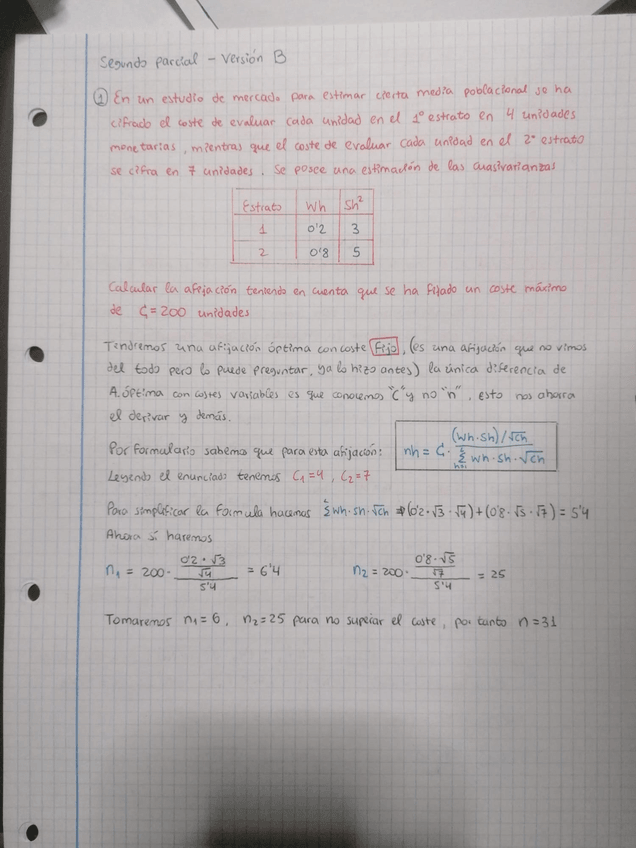 Segundo parcial - Versión B
① En un estudio de mercado para estimar cierta media poblacional se ha
cifrado el coste de evaluar cada unidad en el 1º estrato en 4 unidades
monetarias, mientras que el coste de evaluar cada unidad en el 2º estrato
se cifra en 7 unidades. Se posee una estimación de las cuasivarianzas
Estrato Wh Sh²
1 0'2 3
2 0'8 5
Calcular la afijación teniendo en cuenta que se ha fijado un coste máximo
de C = 200 unidades
Tendremos una afijación óptima con coste fijo, (es una afijación que no vimos
del todo pero lo puede preguntar, ya lo hizo antes) la única diferencia de
A. Óptima con costes variables es que conocemos "C" y no "n", esto nos ahorra
el derivar y demás.
Por formulario sabemos que para esta afijación: nh = C · (Wh·Sh)/√ch / Σ Wh·Sh·√ch
Leyendo el enunciado tenemos C₁=4, C₂=7
Para simplificar la fórmula hacemos Σ Wh·Sh·√ch ⇒ (0'2·√3·√4)+(0'8·√5·√7) = 5'4
Ahora sí haremos
n₁ = 200 · (0'2·√3 / √4) / 5'4 = 6'4 n₂ = 200 · (0'8·√5 / √7) / 5'4 = 25
Tomaremos n₁=6, n₂=25 para no superar el coste, por tanto n=31